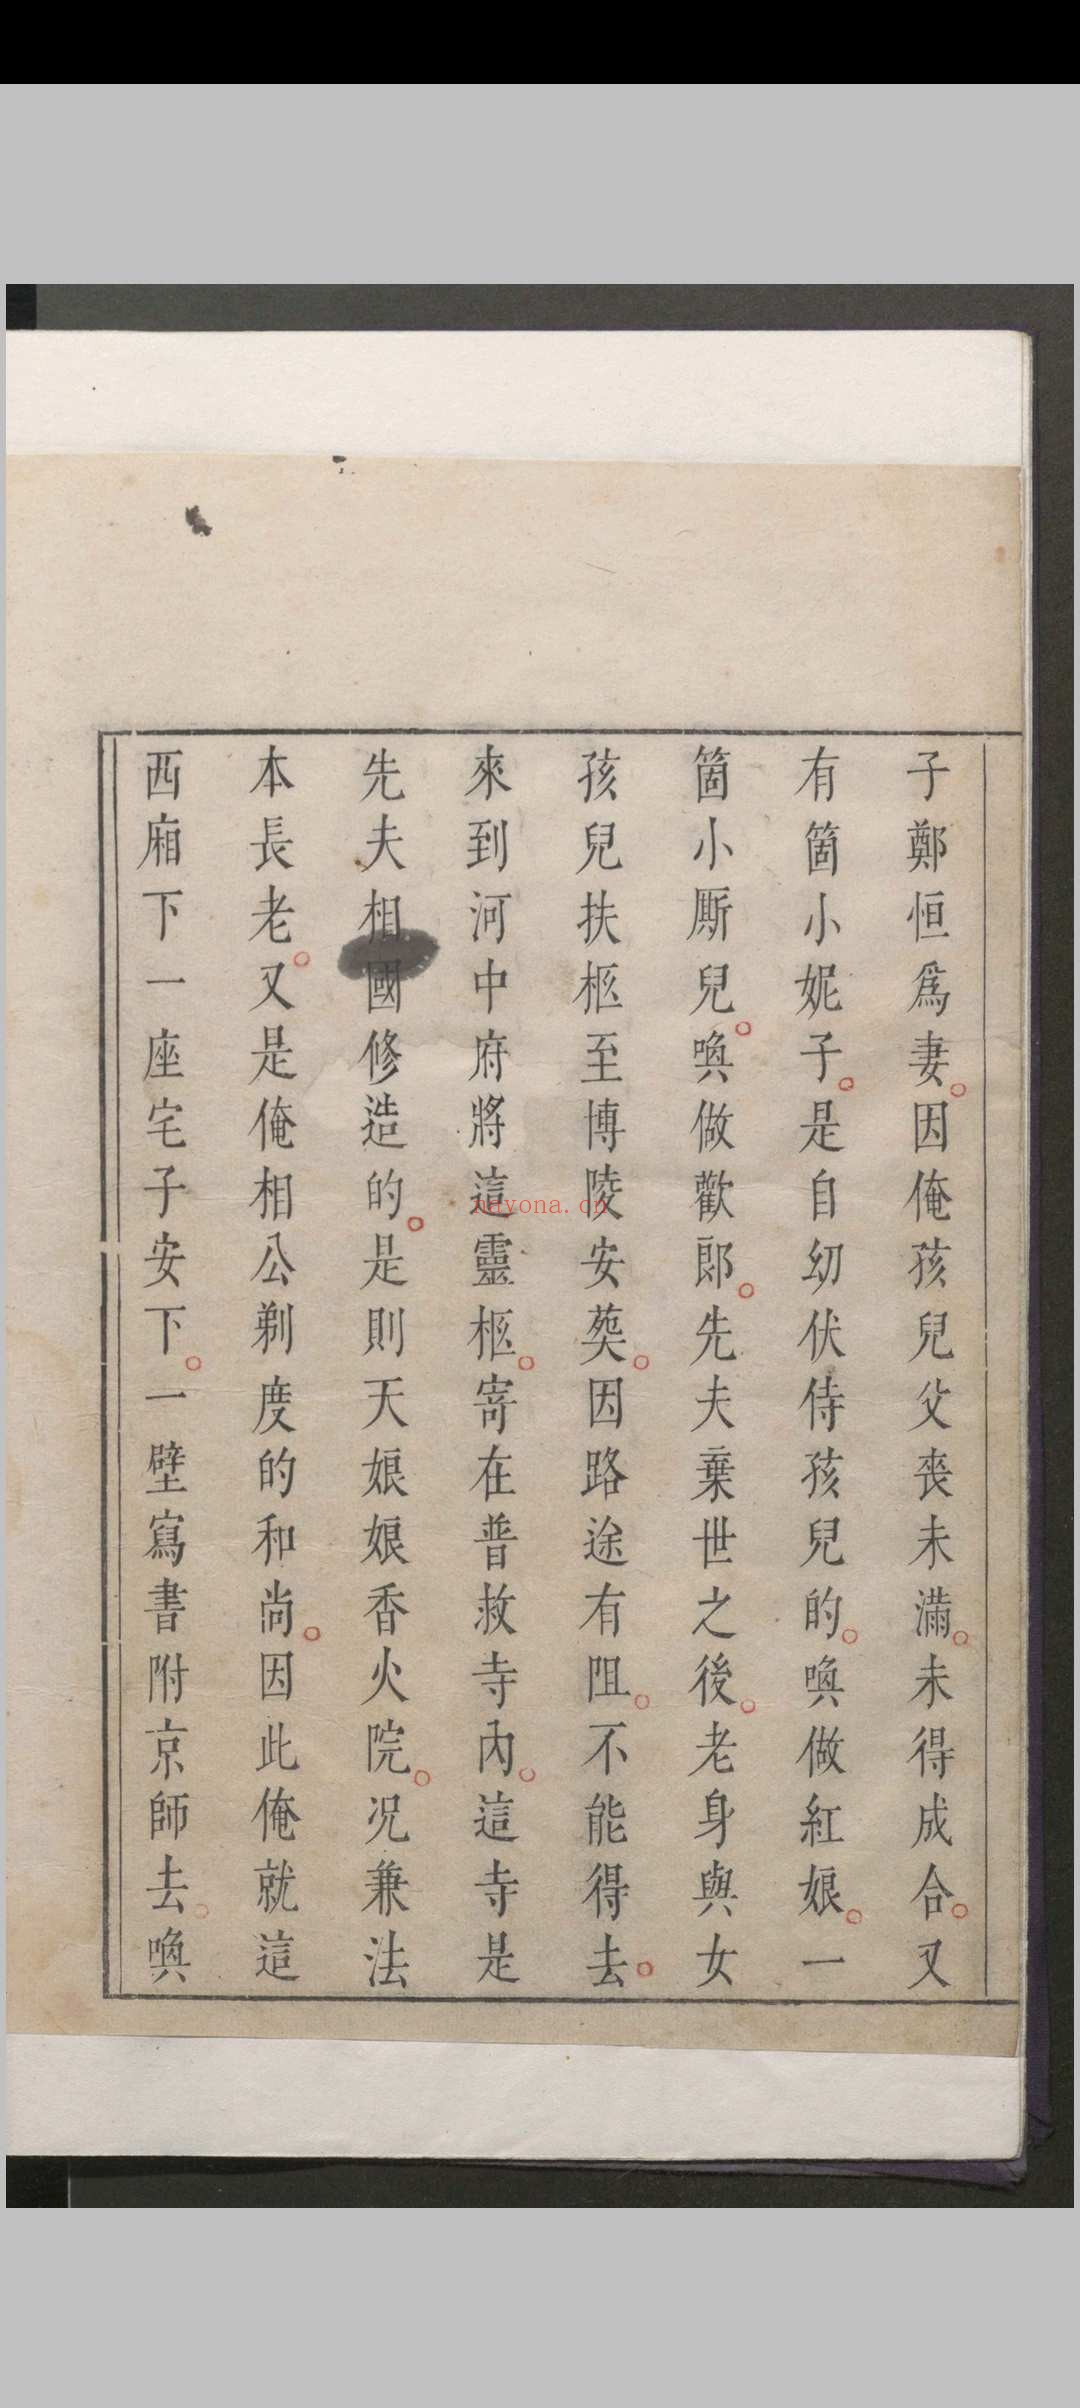 子鄭恒爲妻。因俺孩兒父喪未滿。未得成合。又
有箇小妮子。是自幼伏侍孩兒的。喚做紅娘。一
箇小厮兒。喚做歡郎。先夫棄世之後。老身與女
孩兒扶柩至博陵安葬。因路途有阻。不能得去。
來到河中府將這靈柩。寄在普救寺內。這寺是
先夫相國修造的。是則天娘娘香火院。况兼法
本長老。又是俺相公剃度的和尚。因此俺就這
西廂下一座宅子安下。一壁寫書附京師去。喚
nayona.cn